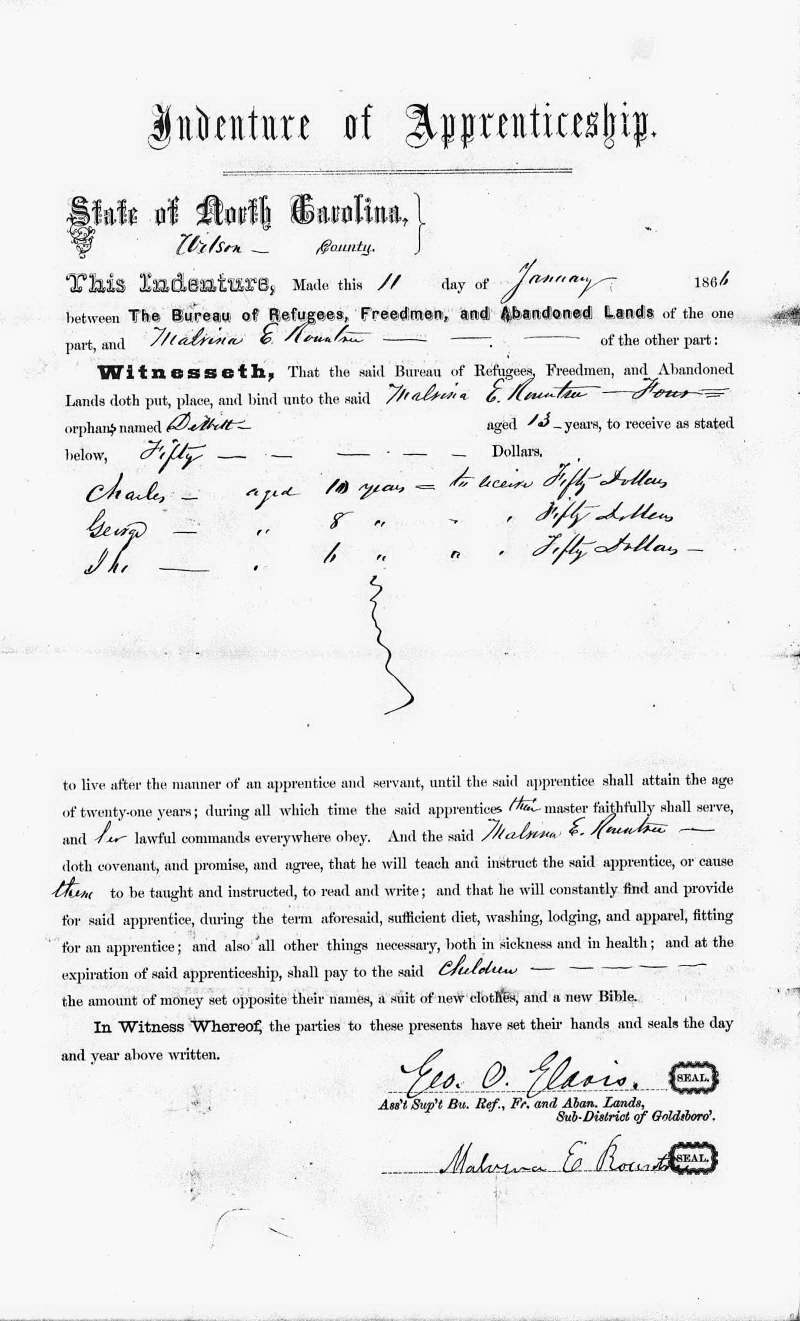 Indenture of Apprenticeship.
State of North Carolina,
Wilson County.
This Indenture, Made this 11 day of January 1866
between The Bureau of Refugees, Freedmen, and Abandoned Lands of the one
part, and Malvina E. Rountree of the other part:
Witnesseth, That the said Bureau of Refugees, Freedmen, and Abandoned
Lands doth put, place, and bind unto the said Malvina E. Rountree – Four
orphans named aged 13 years, to receive as stated
below, Fifty Dollars.
Charles – aged 10 years = to receive Fifty Dollars
George — " 8 " " " Fifty Dollars
— " 6 " " " Fifty Dollars –
to live after the manner of an apprentice and servant, until the said apprentice shall attain the age
of twenty-one years; during all which time the said apprentices their master faithfully shall serve,
and her lawful commands everywhere obey. And the said Malvina E. Rountree —
doth covenant, and promise, and agree, that he will teach and instruct the said apprentice, or cause
them to be taught and instructed, to read and write; and that he will constantly find and provide
for said apprentice, during the term aforesaid, sufficient diet, washing, lodging, and apparel, fitting
for an apprentice; and also all other things necessary, both in sickness and in health; and at the
expiration of said apprenticeship, shall pay to the said Children — — — — —
the amount of money set opposite their names, a suit of new clothes, and a new Bible.
In Witness Whereof, the parties to these presents have set their hands and seals the day
and year above written.
Geo. O. Glavis. SEAL.
Ass't Sup't Bu. Ref., Fr. and Aban. Lands,
Sub-District of Goldsboro'.
Malvina E Rountree SEAL.